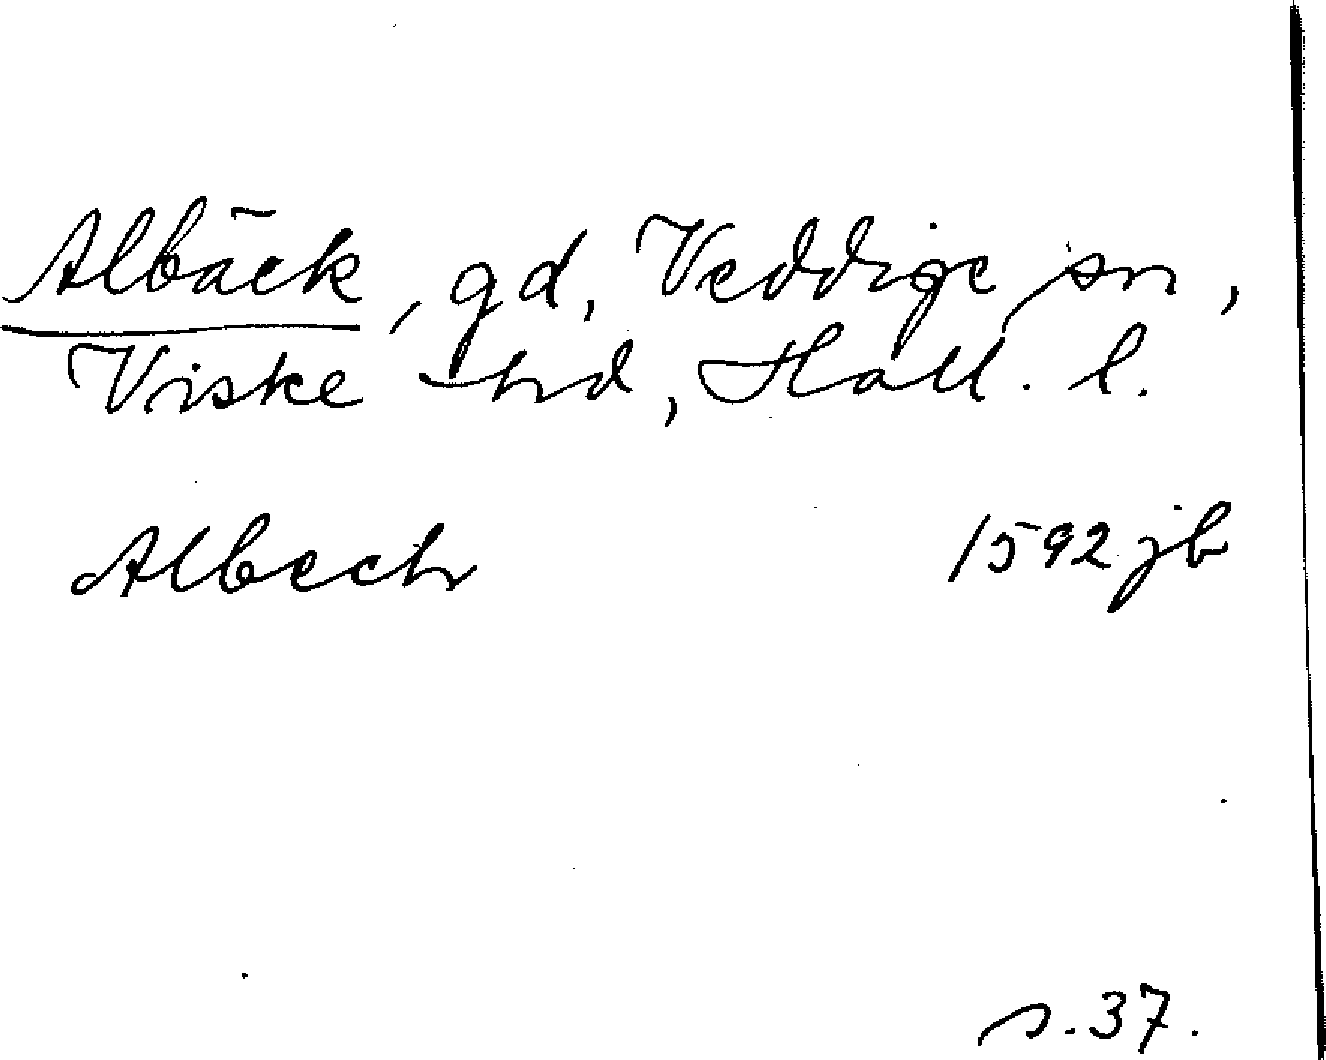 Albäck, gd, Veddige sn,
Viske hd, Hall. l.
Albech 1592 jb
s. 37.